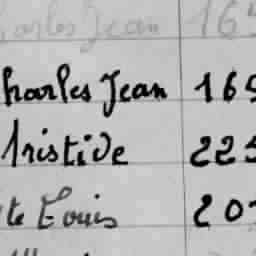 harles Jean 165
harles Jean 169
Aristide 225
te Louis 20